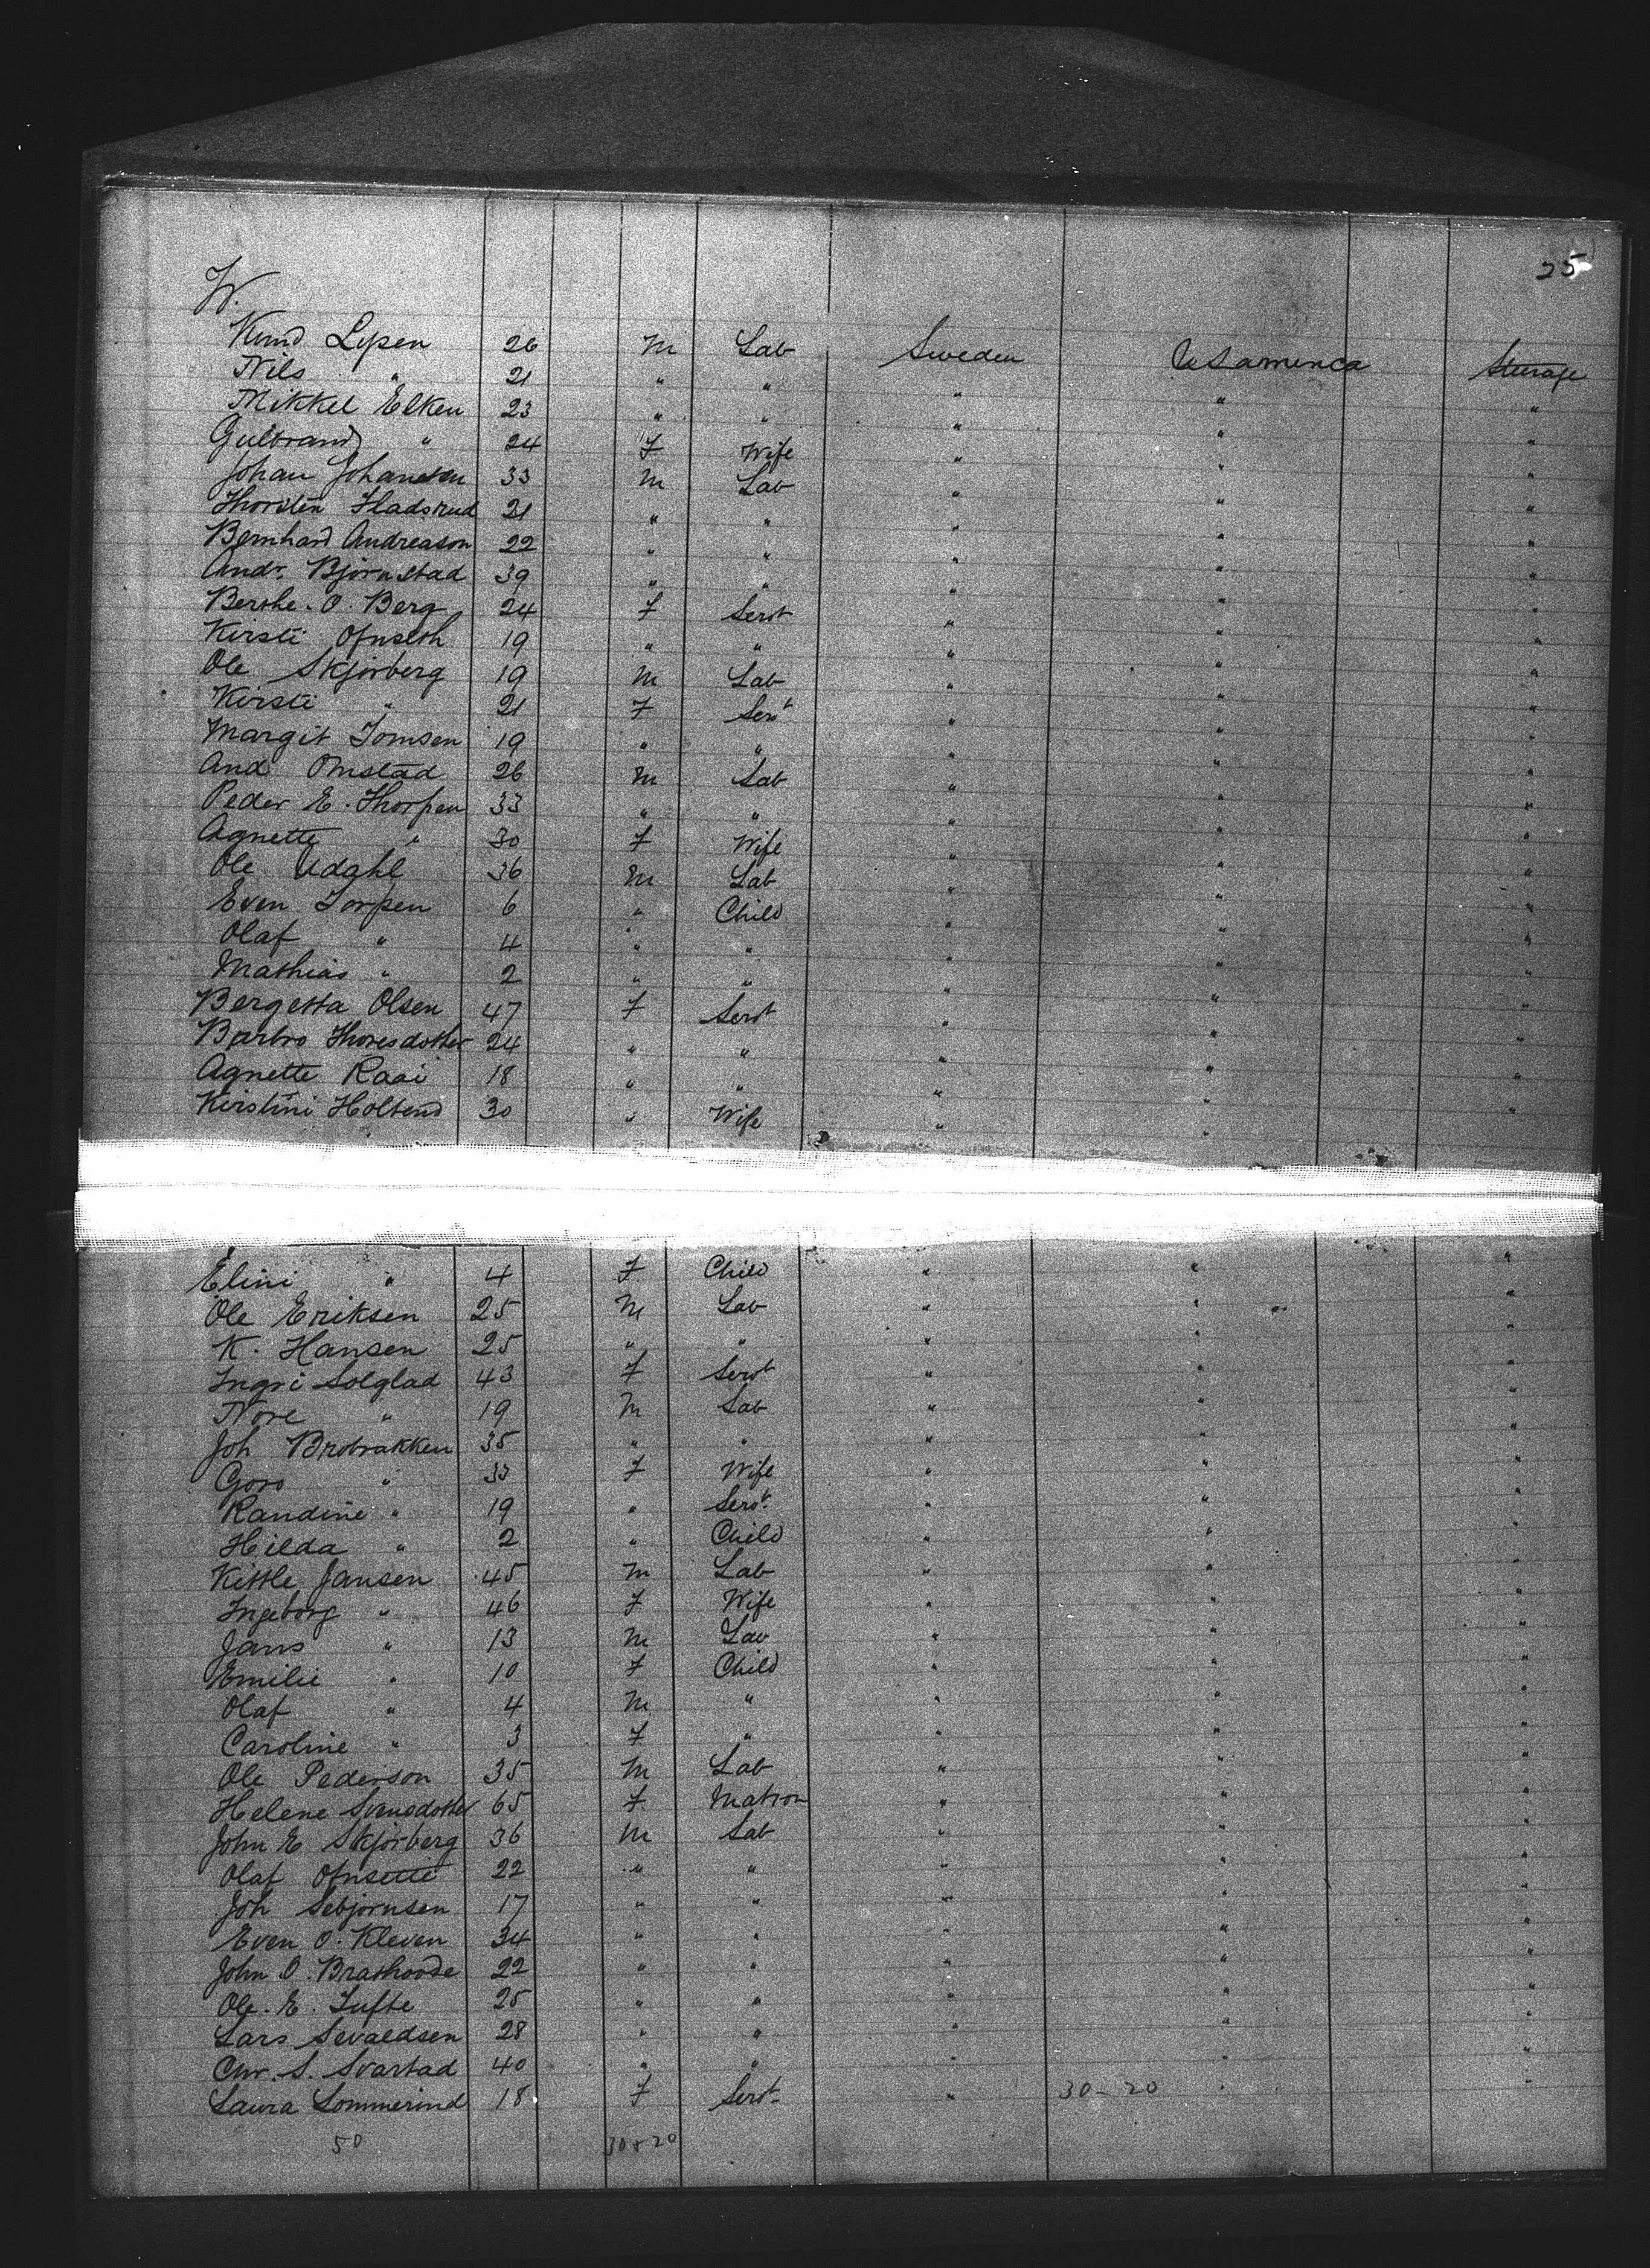 25
W.
Knud Lysen 26 M Lab Sweden U S America Steerage
Nils " 21 " " " " "
Mikkel Elken 23 " " " " "
Gulbrand " 24 F Wife " " "
Johan Johansen 33 M Lab " " "
Thorsten Fladsrud 21 " " " " "
Bernhard Andreason 22 " " " " "
Andr. Bjornstad 39 " " " " "
Berthe. O. Berg 24 F Servt " " "
Kirsti Ofnseth 19 " " " " "
Ole Skjorberg 19 M Lab " " "
Kirsti " 21 F Servt " " "
Margit Tomsen 19 " " " " "
And Onstad 26 M Lab " " "
Peder E. Thorpen 33 " " " " "
Agnette " 30 F Wife " " "
Ole Udahl 36 M Lab " " "
Even Torpen 6 " Child " " "
Olaf " 4 " " " " "
Mathias " 2 " " " " "
Bergetta Olsen 47 F Servt " " "
Barbro Thoresdotter 24 " " " " "
Agnette Raai 18 " " " " "
Kirstini Holtend 30 " Wife " "
Elini " 4 F Child " " "
Ole Eriksen 25 M Lab " " "
K. Hansen 25 " " " "
Ingri Solglad 43 F Servt " " "
Nore " 19 M Lab " " "
Joh Brobrakken 35 " " " " "
Goro " 33 F Wife " " "
Randine " 19 " Servt. " " "
Hilda " 2 " Child " " "
Kittle Jansen 45 M Lab " " "
Ingeborg " 46 F Wife " " "
Jans " 13 M Lab " " "
Emilie " 10 F Child " " "
Olaf " 4 M " " " "
Caroline " 3 F " " " "
Ole Pederson 35 M Lab " " "
Helene Svensdotter 65 F Matron " " "
John E Skjorberg 36 M Lab " " "
Olaf Ofnsette 22 " " " " "
Joh Sebjornsen 17 " " " " "
Even O. Kleven 34 " " " " "
John O. Brathoode 22 " " " " "
Ole. E. Tufte 25 " " " " "
Lars Sevaldsen 28 " " " " "
Chr. S. Svartad 40 " " " " "
Laura Sommerind 18 F Servt. " 30-20 " "
50 30+20